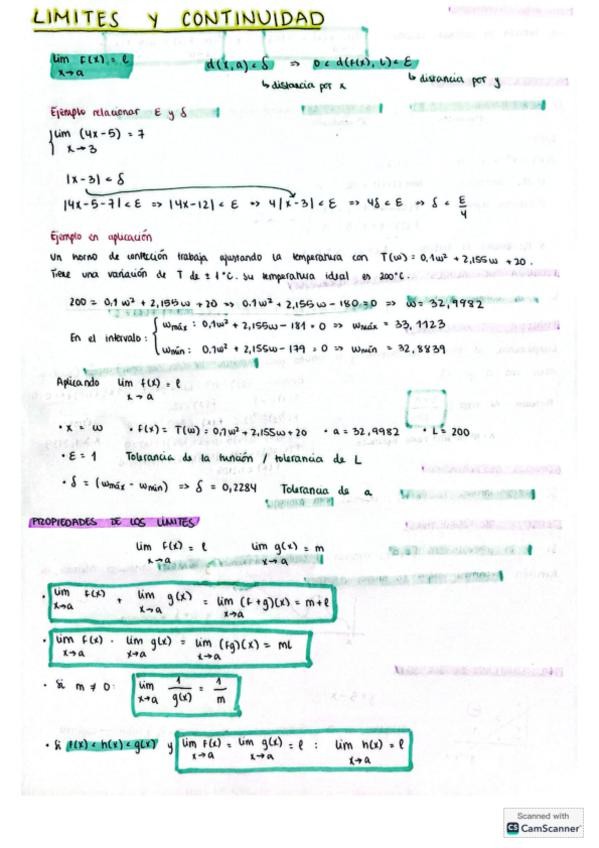 LIMITES Y CONTINUIDAD
lim f(x) = l
x→a
d(x,a) < δ ⇒ 0 < d(f(x), L) < ε
↳ distancia por x
↳ distancia por y
Ejemplo relacionar ε y δ
lim (4x-5) = 7
x→3
|x-3| < δ
|4x-5-7| < ε ⇒ |4x-12| < ε ⇒ 4|x-3| < ε ⇒ 4δ < ε ⇒ δ < ε/4
Ejemplo en aplicación
Un horno de confección trabaja ajustando la temperatura con T(w) = 0,1w² + 2,155w + 20.
Tiene una variación de T de ± 1°C. Su temperatura ideal es 200°C.
200 = 0,1w² + 2,155w + 20 ⇒ 0.1w² + 2,155w - 180 = 0 ⇒ w = 32,9982
En el intervalo:
wmáx : 0,1w² + 2,155w - 181 = 0 ⇒ wmáx = 33,1123
wmín : 0.1w² + 2,155w - 179 = 0 ⇒ wmín = 32,8839
Aplicando lim f(x) = l
x→a
• x = w • f(x) = T(w) = 0,1w² + 2,155w + 20 • a = 32,9982 • L = 200
• ε = 1 Tolerancia de la función / tolerancia de L
• δ = (wmáx - wmín) ⇒ δ = 0,2284 Tolerancia de a
PROPIEDADES DE LOS LÍMITES
lim f(x) = l lim g(x) = m
x→a x→a
• lim f(x) + lim g(x) = lim (f+g)(x) = m+l
x→a x→a x→a
• lim f(x) · lim g(x) = lim (fg)(x) = ml
x→a x→a x→a
• Si m ≠ 0: lim 1/g(x) = 1/m
x→a
• Si f(x) < h(x) < g(x) y lim f(x) = lim g(x) = l : lim h(x) = l
x→a x→a x→a
Scanned with
CS CamScanner